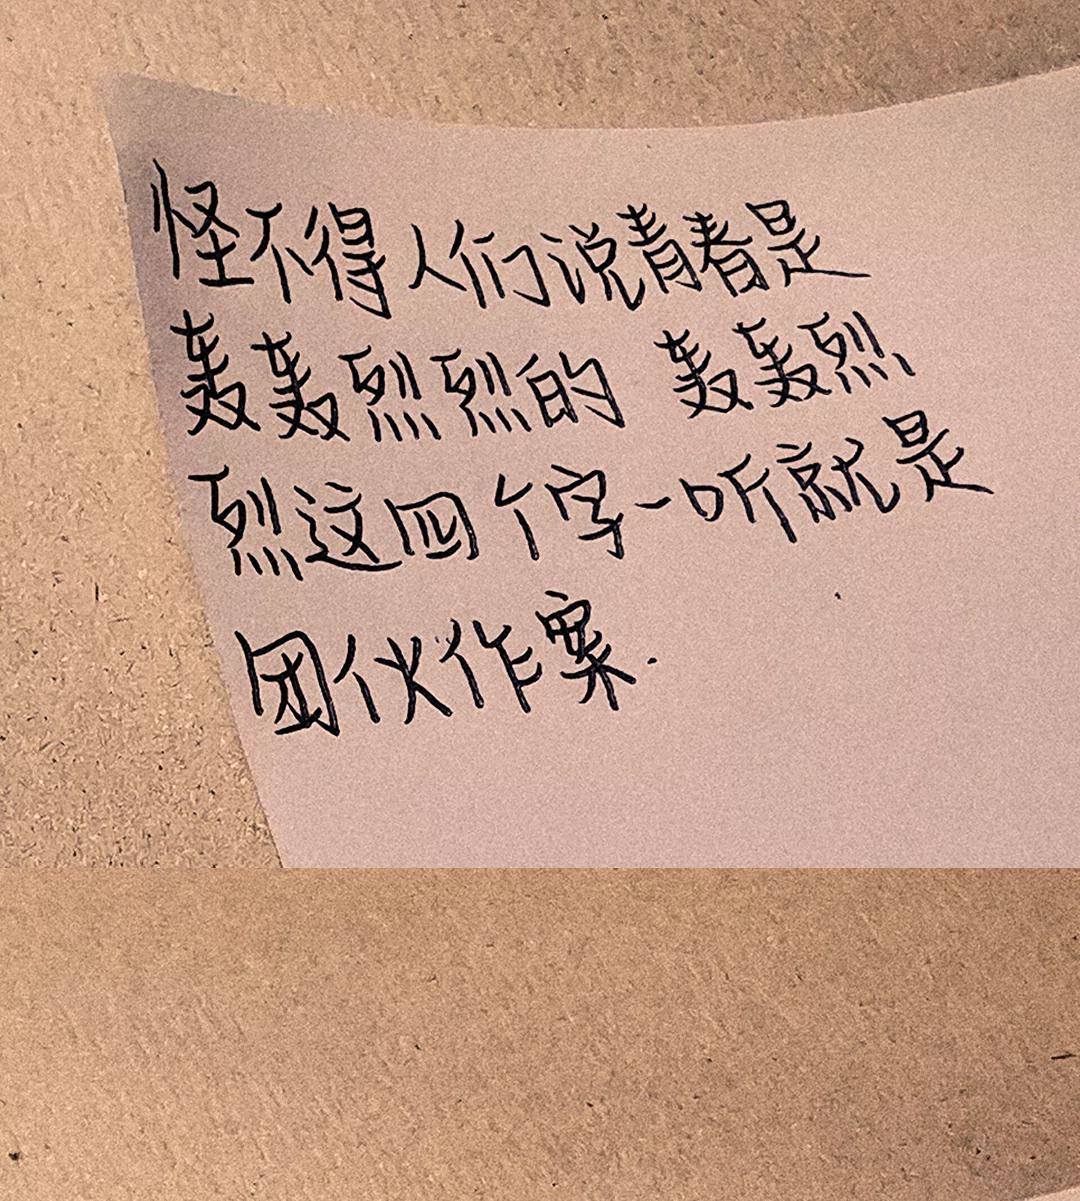 怪不得人们说青春是
轰轰烈烈的 轰轰烈
烈这四个字一听就是
团伙作案.